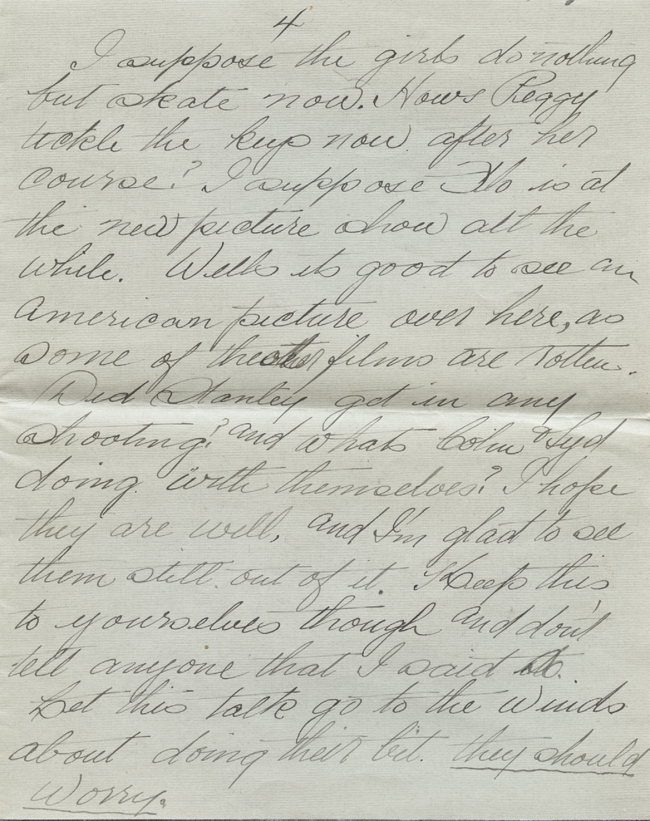 4
I suppose the girls do nothing
but skate now. Hows Peggy
tickle the keys now after her
course? I suppose Flo is at
the new picture show all the
while. Wells its good to see an
American picture over here, as
some of the other films are rotten.
Did Stanley get in any
shooting? and whats Colin & Syd
doing with themselves? I hope
they are well, and I'm glad to see
them still out of it. Keep this
to yourselves though and don't
tell anyone that I said it.
Let this talk go to the winds
about doing their bit. they should
Worry.